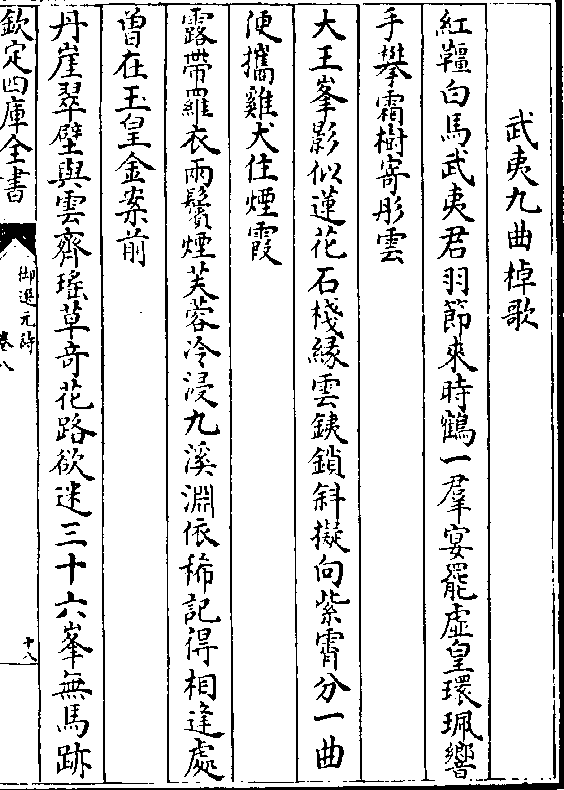 武夷九曲棹歌
紅韁白馬武夷君羽節來時鶴一羣宴罷虛皇環珮響
手攀霜樹寄彤雲
大王峯影似蓮花石棧緣雲鐵鎖斜擬向紫霄分一曲
便攜雞犬住煙霞
露帶羅衣兩鬢煙芙蓉冷浸九溪淵依稀記得相逢處
曽在玉皇金案前
丹崖翠壁與雲齊瑤草竒花路欲迷三十六峯無馬跡
欽定四庫全書
御選元詩
卷八
十八